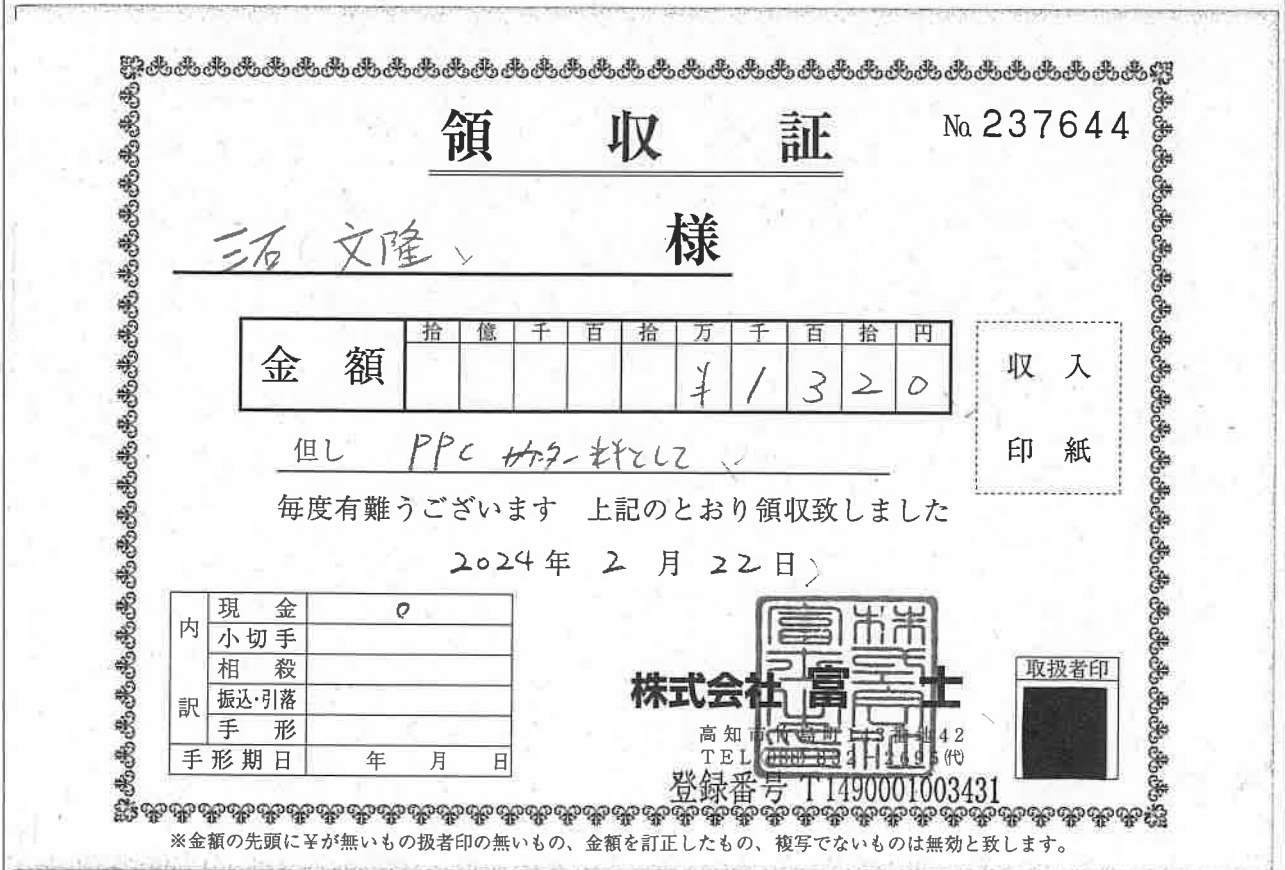 領収証
No. 237644
三石 文隆 様
拾 億 千 百 拾 万 千 百 拾 円
金額 ¥1320
収入
印紙
但し PPC カウンター料として
毎度有難うございます 上記のとおり領収致しました
2024年 2月 22日
内訳
現金 0
小切手
相殺
振込・引落
手形
手形期日 年 月 日
株式会社 富士
取扱者印
高知市
TEL
登録番号 T1490001003431
※金額の先頭に¥が無いもの扱者印の無いもの、金額を訂正したもの、複写でないものは無効と致します。